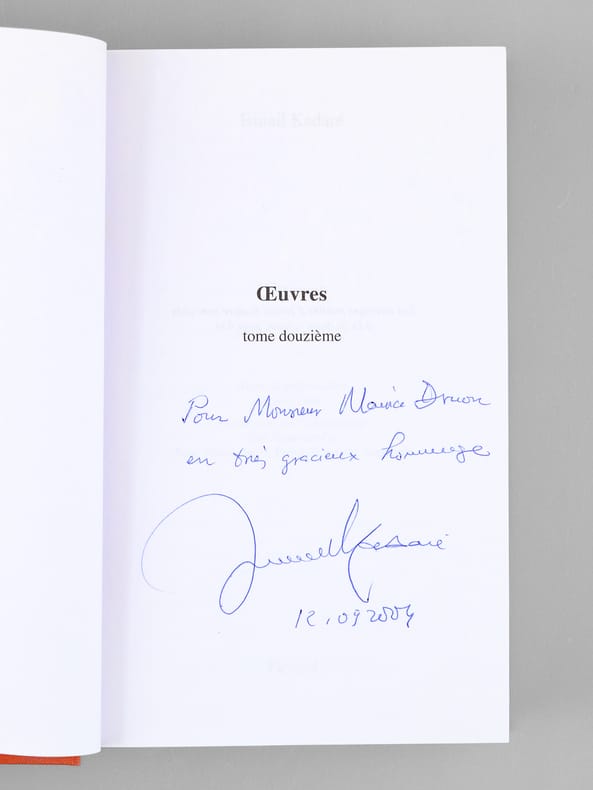 Ismail Kadaré
Œuvres
tome douzième
Pour Monsieur Maurice Druon
en très gracieux hommage
Ismail Kadaré
12.09 2004